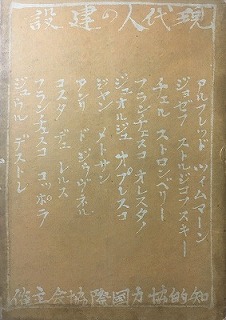 現代人の建設
アルフレッド ツィムマーン
ジョゼフ ストルジゴフスキー
チェル ストロンベリー
フランチェスコ オレスタノ
ジェオルジュ オプレスコ
ジャン メトサン
アンリ ド ジゥヴネル
コスタ デュ レルス
フランチェスコ コッポラ
ジュウル デストレ
知的協力國際協会主催